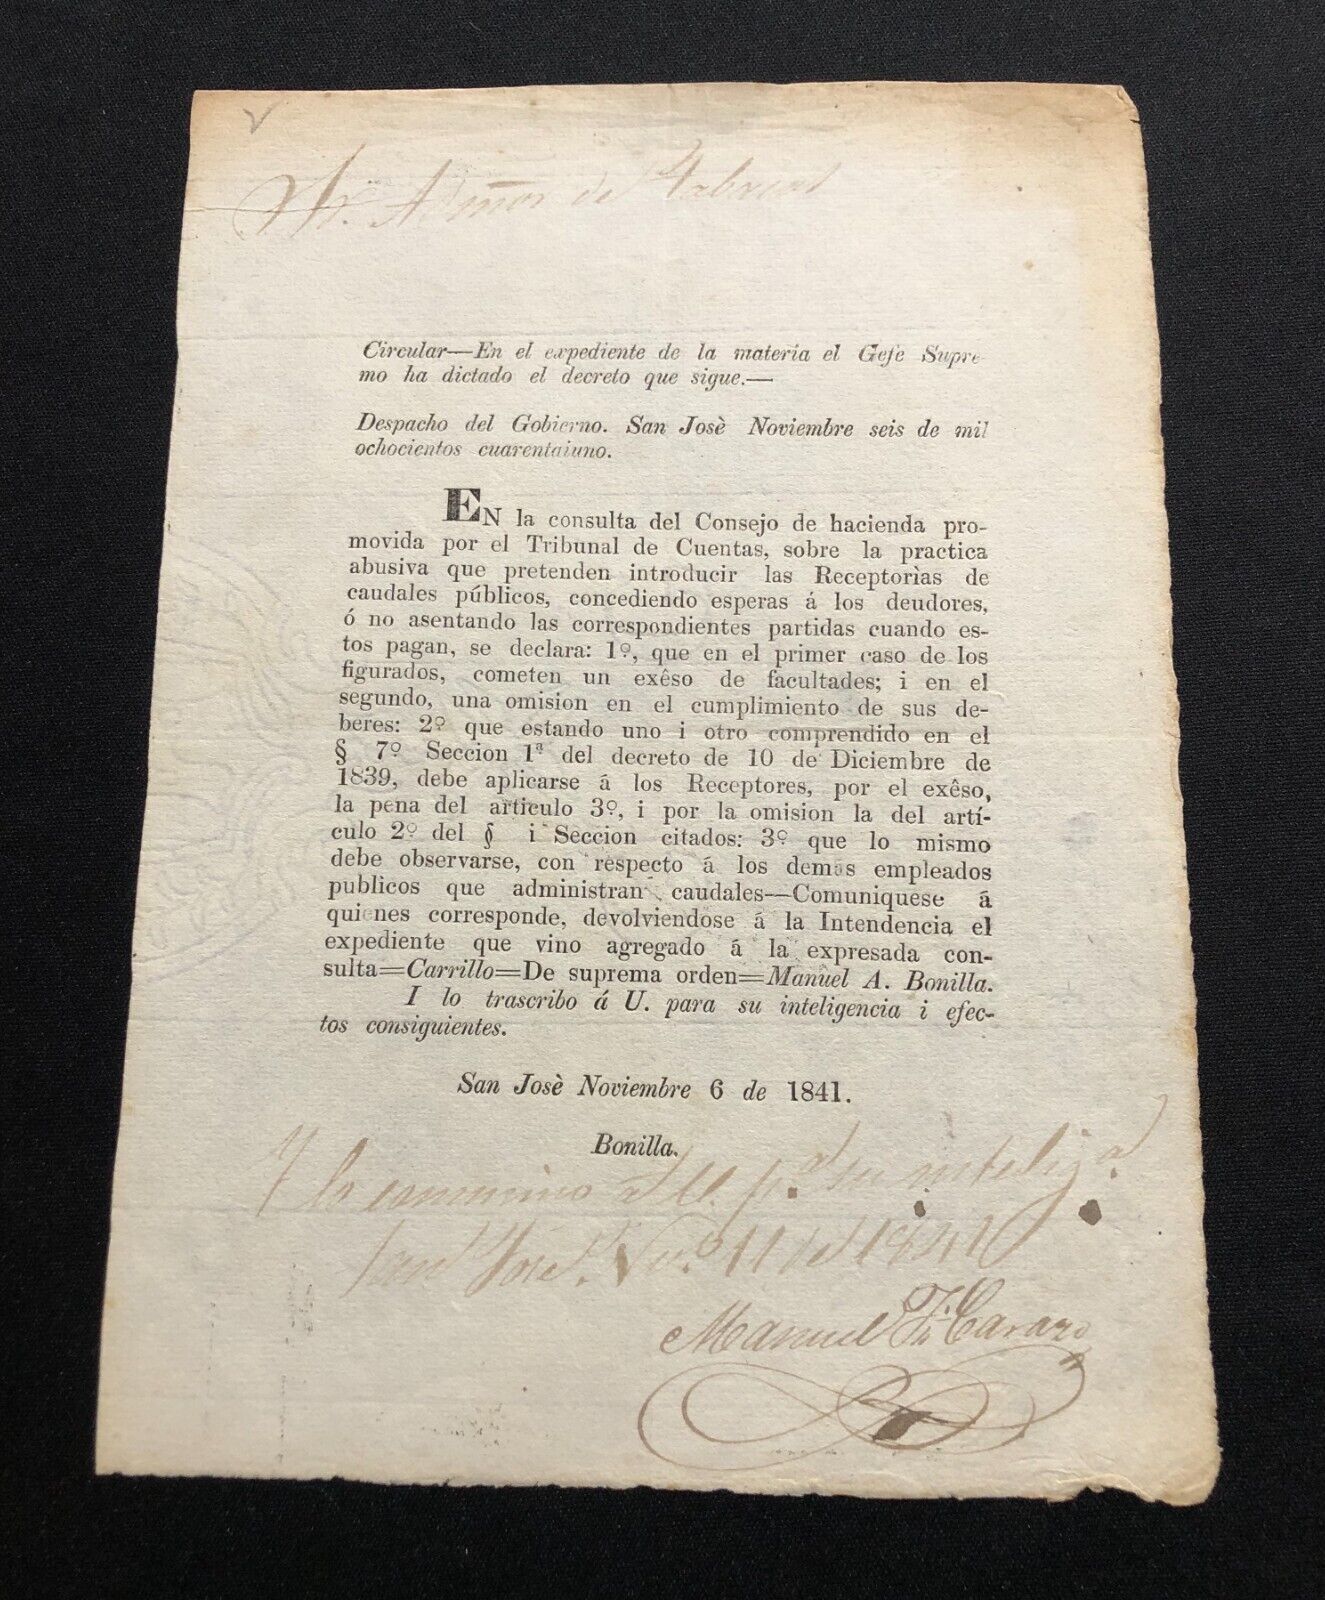 Sr. Admor de Tabacos
Circular—En el expediente de la materia el Gefe Supre-
mo ha dictado el decreto que sigue.—
Despacho del Gobierno. San Josè Noviembre seis de mil
ochocientos cuarentaiuno.
EN la consulta del Consejo de hacienda pro-
movida por el Tribunal de Cuentas, sobre la practica
abusiva que pretenden introducir las Receptorìas de
caudales públicos, concediendo esperas á los deudores,
ó no asentando las correspondientes partidas cuando es-
tos pagan, se declara: 1º, que en el primer caso de los
figurados, cometen un exêso de facultades; i en el
segundo, una omision en el cumplimiento de sus de-
beres: 2º que estando uno i otro comprendido en el
§ 7º Seccion 1ª del decreto de 10 de Diciembre de
1839, debe aplicarse á los Receptores, por el exêso,
la pena del articulo 3º, i por la omision la del artí-
culo 2º del § i Seccion citados: 3º que lo mismo
debe observarse, con respecto á los demas empleados
publicos que administran caudales—Comuniquese á
quienes corresponde, devolviendose á la Intendencia el
expediente que vino agregado á la expresada con-
sulta=Carrillo=De suprema orden=Manuel A. Bonilla.
I lo trascribo á U. para su inteligencia i efec-
tos consiguientes.
San Josè Noviembre 6 de 1841.
Bonilla.
Y lo comunico a U. pa. su inteliga.
San José Nvo. 11 de 1841
Manuel F. Carazo